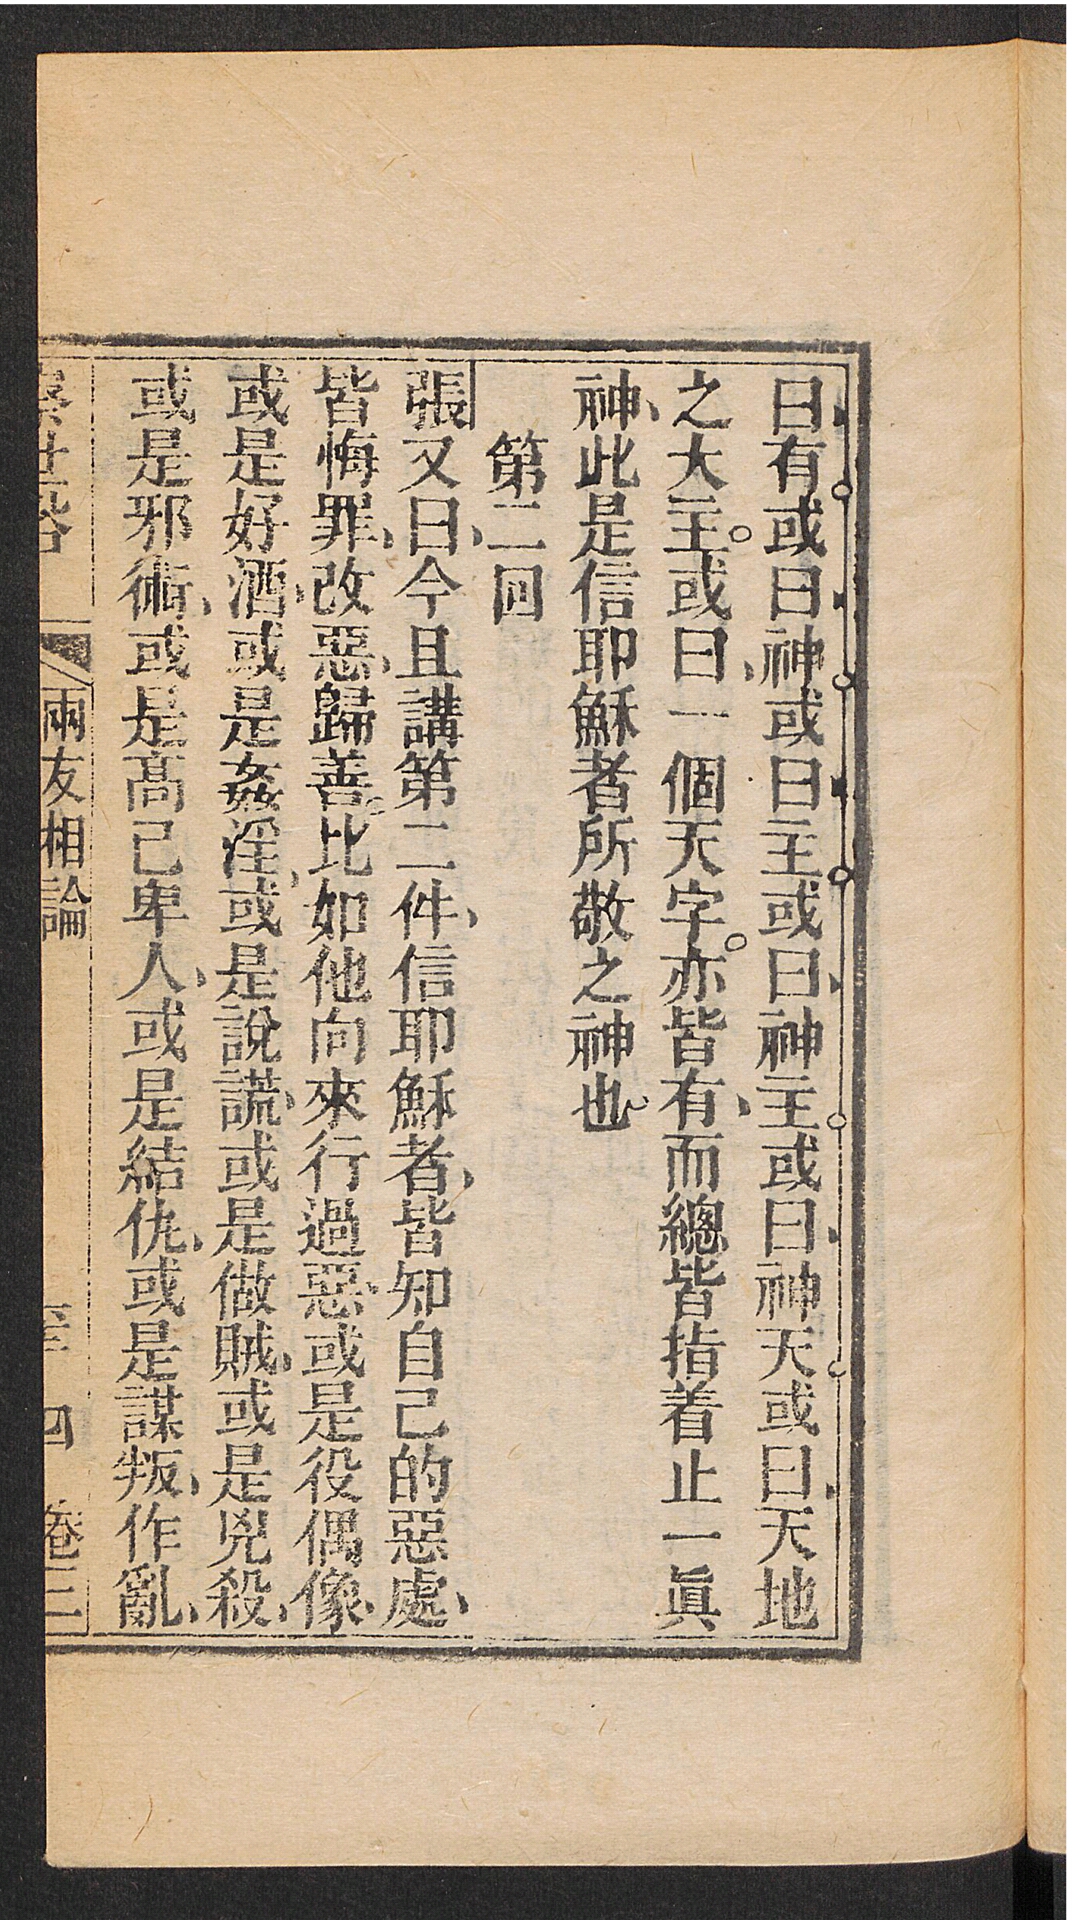 曰有或曰神或曰主或曰神主或曰神天或曰天地
之大主。或曰、一個天字。亦皆有、而總皆指着止一眞
神、此是信耶穌者所敬之神也、
第二回
張又曰、今且講第二件、信耶穌者、皆知自己的惡處、
皆悔罪、改惡、歸善、比如他向來行過惡、或是役偶像、
或是好酒、或是姦淫、或是說謊、或是做賊、或是兇殺、
或是邪術、或是高己卑人、或是結仇、或是謀叛、作亂、
察世俗
兩友相論
四
卷三